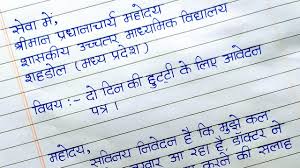 सेवा में,
श्रीमान प्रधानाचार्य महोदय
शासकीय उच्चतर माध्यमिक विद्यालय
शहडोल (मध्य प्रदेश)
विषय :- दो दिन की छुट्टी के लिए आवेदन
पत्र।
महोदय,
सविनय निवेदन है कि मुझे कल
आ रहा है, डाक्टर ने
करने की सलाह